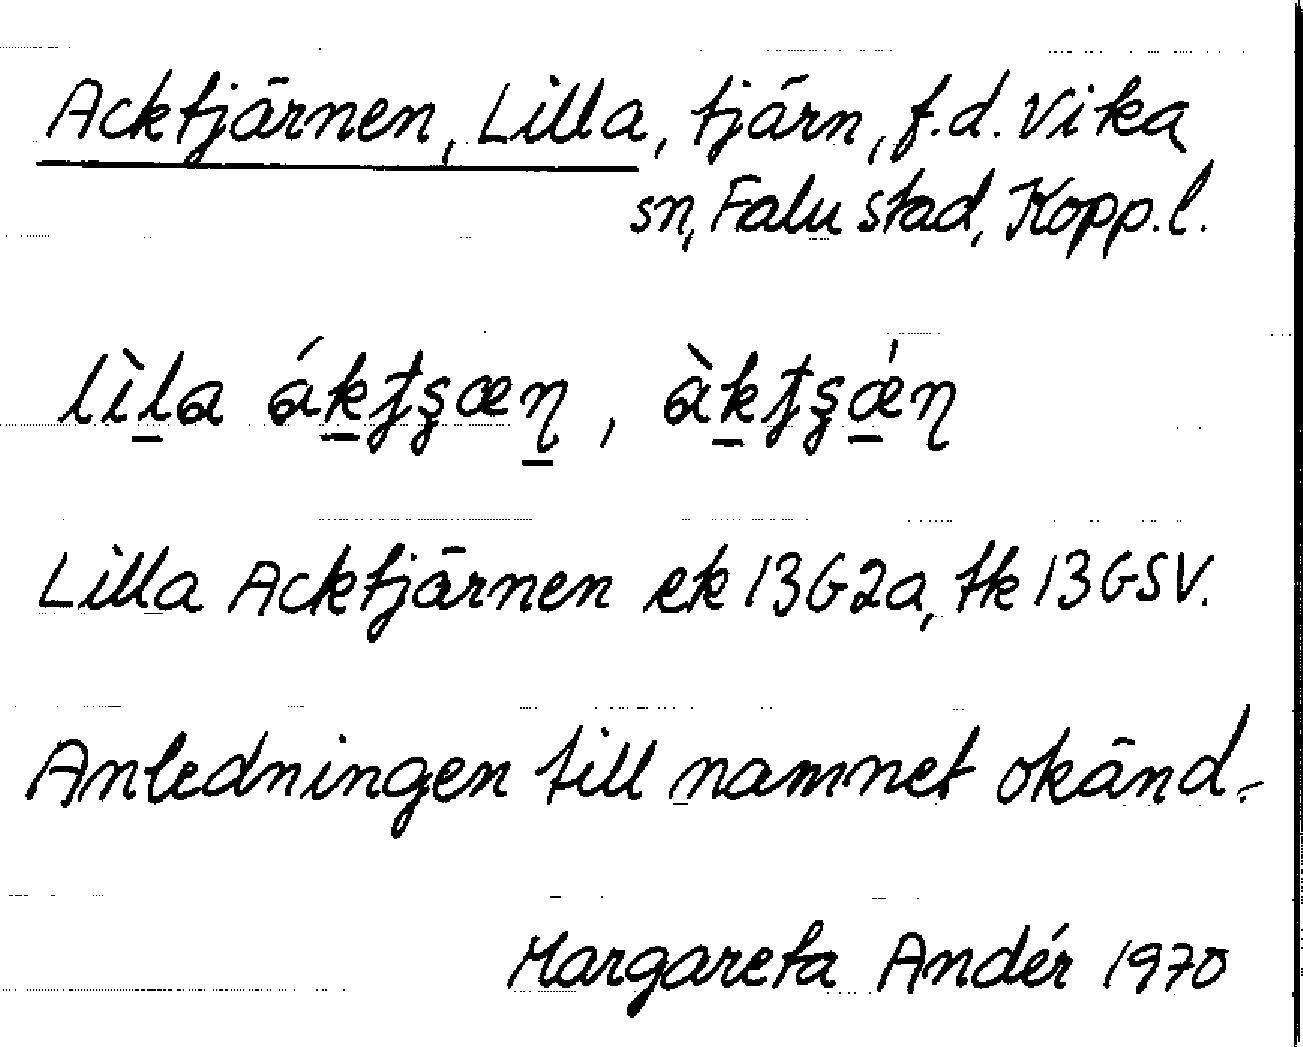 Acktjärnen, Lilla, tjärn, f.d. Vika
sn, Falu stad, Kopp.l.
lìl̲a ák̲ꞧʂæn̲, àk̲ꞧʂǽ̲n
Lilla Acktjärnen ek 13G2a, tk 13GSV.
Anledningen till namnet okänd.
Margareta Andér 1970